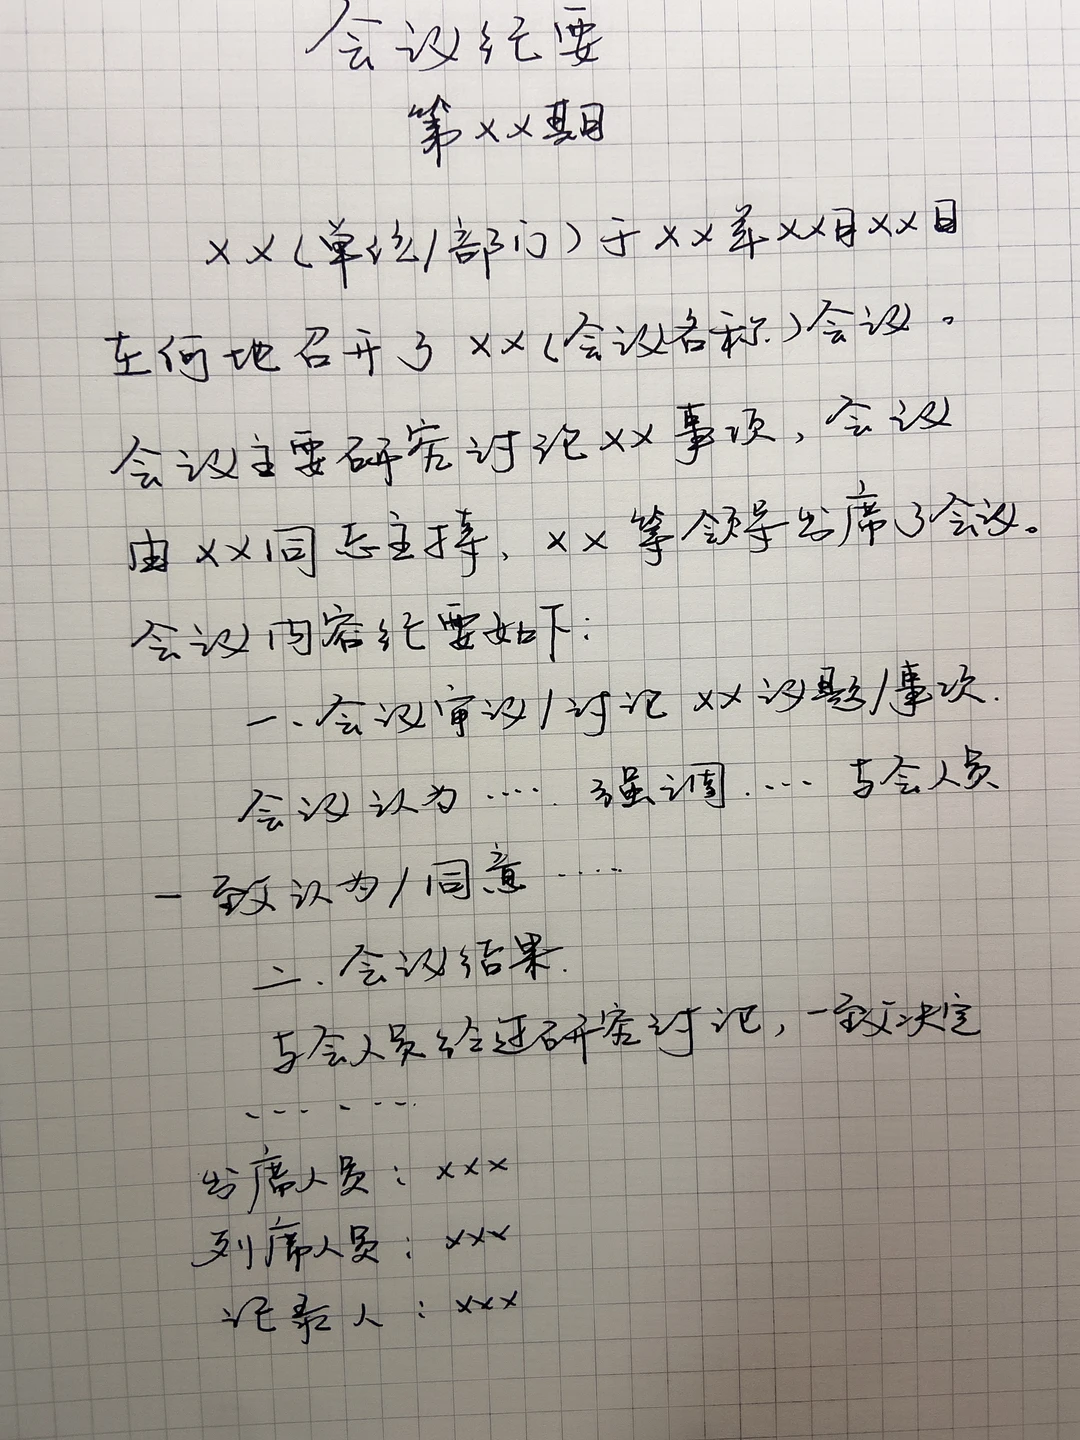 会议纪要
第××期
××(单位/部门)于××年××月××日
在何地召开了××(会议名称)会议。
会议主要研究讨论××事项,会议
由××同志主持,××等领导出席了会议。
会议内容纪要如下:
一、会议审议/讨论××议题/事项.
会议认为…… 强调…… 与会人员
一致认为/同意……
二、会议结果.
与会人员经过研究讨论,一致决定
……
出席人员:×××
列席人员:×××
记录人:×××